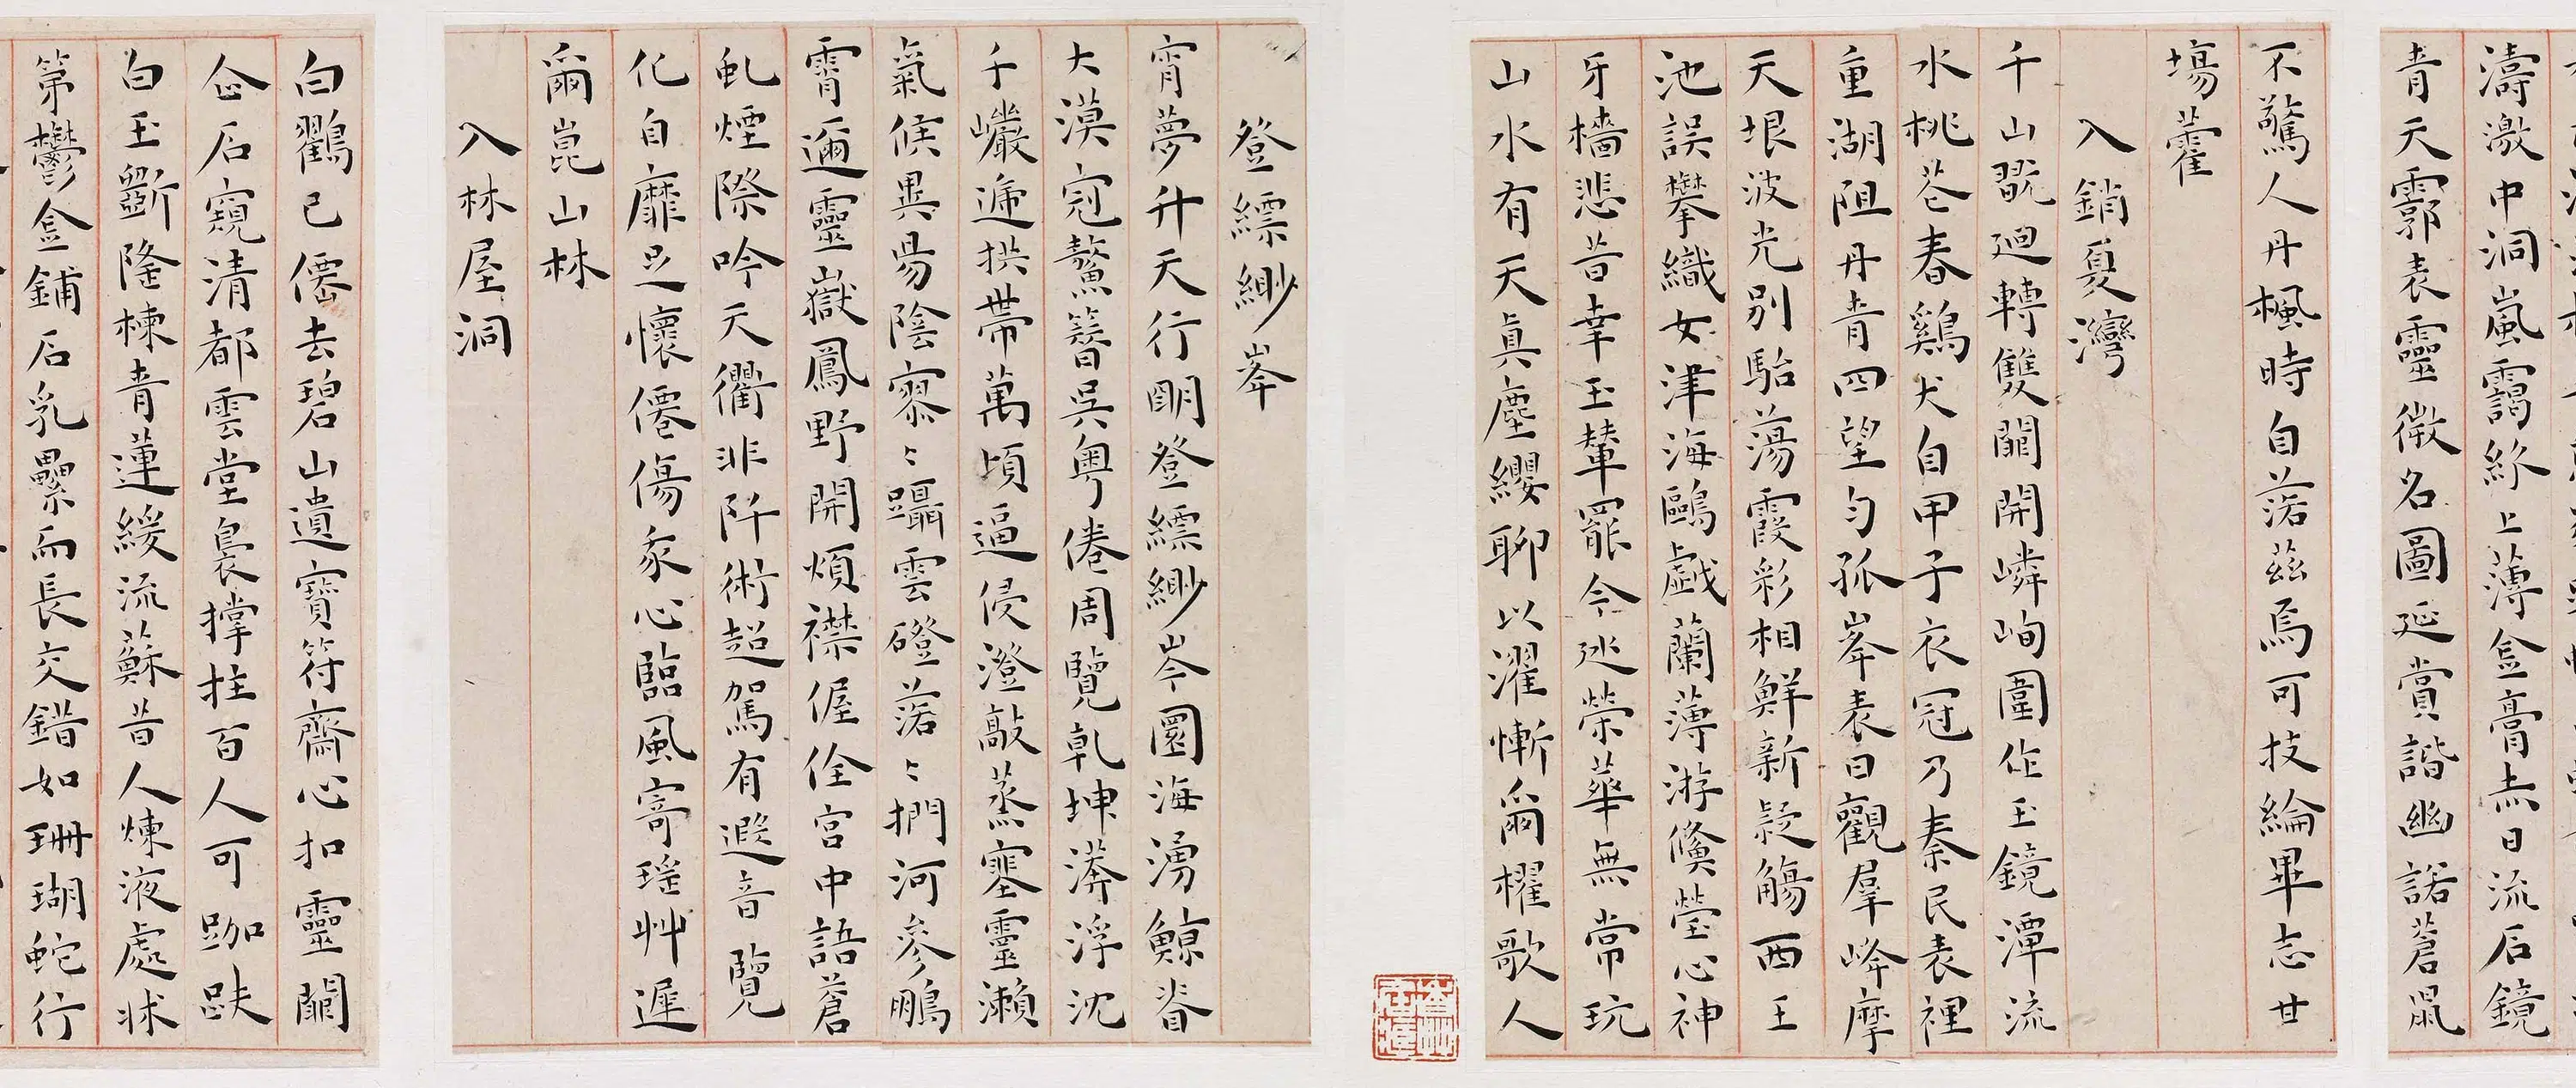 濤激中洞嵐靄終上薄金膏赤日流石鏡
青天霩表靈微名圖延賞諧幽諾蒼鼠
不驚人丹楓時自落茲焉可技綸畢志甘
場藿
入銷夏灣
千山翫迴轉雙闢開嶙峋圍作玉鏡潭流
水桃花春鷄犬自甲子衣冠乃秦民表裡
重湖阻丹青四望勻孤峯表日觀羣峰摩
天垠波光別駘蕩霞彩相鮮新疑觴西王
池誤攀織女津海鷗戲蘭薄游儵瑩心神
牙檣悲昔幸玉輦罷今巡榮華無常玩
山水有天真塵纓聊以濯慚爾櫂歌人
登縹緲峯
宵夢升天行朙登縹緲岑圜海湧鯨脊
大漠冠鰲簪吳粵倦周覽乹坤漭浮沈
千巖遞拱帶萬頃逼侵澄㪣蒸寒靈瀨
氣候異昜陰寥〻躡雲磴落〻捫河參鵬
霄邇靈嶽鳳野開煩襟偓佺宮中語蒼
虬煙際吟天衢非阡術超駕有遐音覽
化自靡足懷僊傷我心臨風寄瑤艸遲
爾崑山林
入林屋洞
白鸛已僊去碧山遺寶符齋心扣靈闢
仚石窺清都雲堂裊撑拄百人可跏趺
白玉斲隆棟青蓮緩流蘇昔人煉液處牀
第鬱金鋪石乳纍而長交錯如珊瑚蛇行